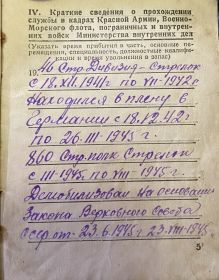 IV. Краткие сведения о прохождении
службы в кадрах Красной Армии, Военно-
Морского флота, пограничных и внутрен-
них войск Министерства внутренних дел
(Указать время прибытия в часть, основные пе-
ремещения, специальность, должностные квалифи-
кации и время увольнения в запас)
19
46 Стр. Дивизия - Стрелок
с 18.XII.1941г по VII-1942г
Находился в плену в
Германии с 18.12.42
по 26.III-1945г.
860 Стр. полк Стрелок
с III-1945г. по VIII-1945г.
Демобилизован на основании
Закона Верховного Совета
СССР от 23.6.1945г 23.VIII.1945г.
5